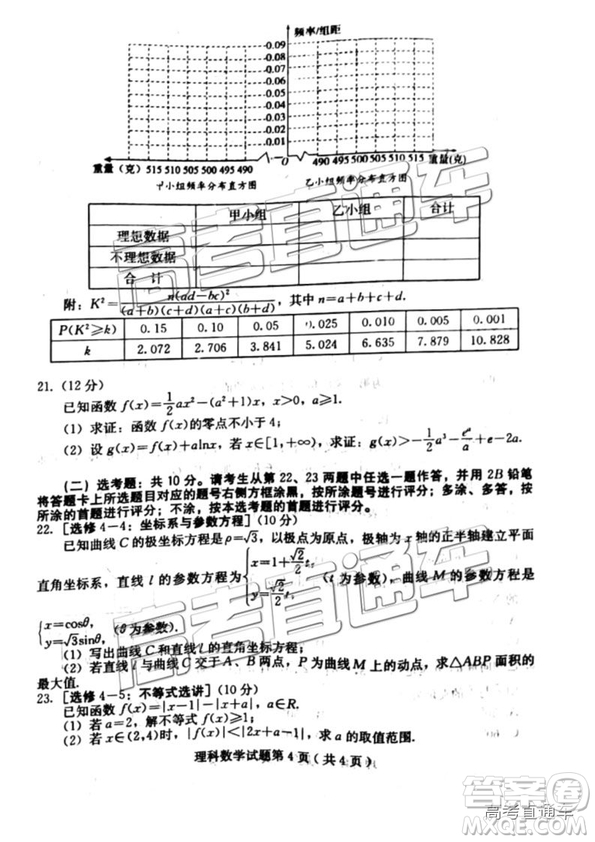 频率/组距
0.09
0.08
0.07
0.06
0.05
0.04
0.03
0.02
0.01
重量(克) 515 510 505 500 495 490 0 490 495 500 505 510 515 重量(克)
甲小组频率分布直方图 乙小组频率分布直方图
甲小组 乙小组 合计
理想数据
不理想数据
合 计
附:K²=n(ad-bc)²/(a+b)(c+d)(a+c)(b+d),其中n=a+b+c+d.
P(K²≥k) 0.15 0.10 0.05 0.025 0.010 0.005 0.001
k 2.072 2.706 3.841 5.024 6.635 7.879 10.828
21.(12分)
已知函数 f(x)=1/2ax²-(a²+1)x,x>0,a≥1.
(1)求证:函数 f(x)的零点不小于4;
(2)设 g(x)=f(x)+alnx,若 x∈[1,+∞),求证:g(x)>-1/2a³-eᵃ/a+e-2a.
(二)选考题:共10分。请考生从第22、23两题中任选一题作答,并用2B铅笔
将答题卡上所选题目对应的题号右侧方框涂黑,按所涂题号进行评分;多涂、多答,按
所涂的首题进行评分;不涂,按本选考题的首题进行评分。
22.[选修4-4:坐标系与参数方程](10分)
已知曲线C的极坐标方程为ρ=√3,以极点为原点,极轴为x轴的正半轴建立平面
直角坐标系,直线l的参数方程为{x=1+√2/2t, y=√2/2t (t为参数).曲线M的参数方程为
{x=cosθ, y=√3sinθ (θ为参数).
(1)写出曲线C和直线l的直角坐标方程;
(2)若直线l与曲线C交于A、B两点,P为曲线M上的动点,求△ABP面积的
最大值.
23.[选修4-5:不等式选讲](10分)
已知函数 f(x)=|x-1|-|x+a|,a∈R.
(1)若a=2,解不等式 f(x)<x;
(2)若x∈(2,4)时,|f(x)|<|2x+a-1|,求a的取值范围.
理科数学试题第4页(共4页)
高考直通车
高考直通车
答案圈
高考直通车
MXQE.COM